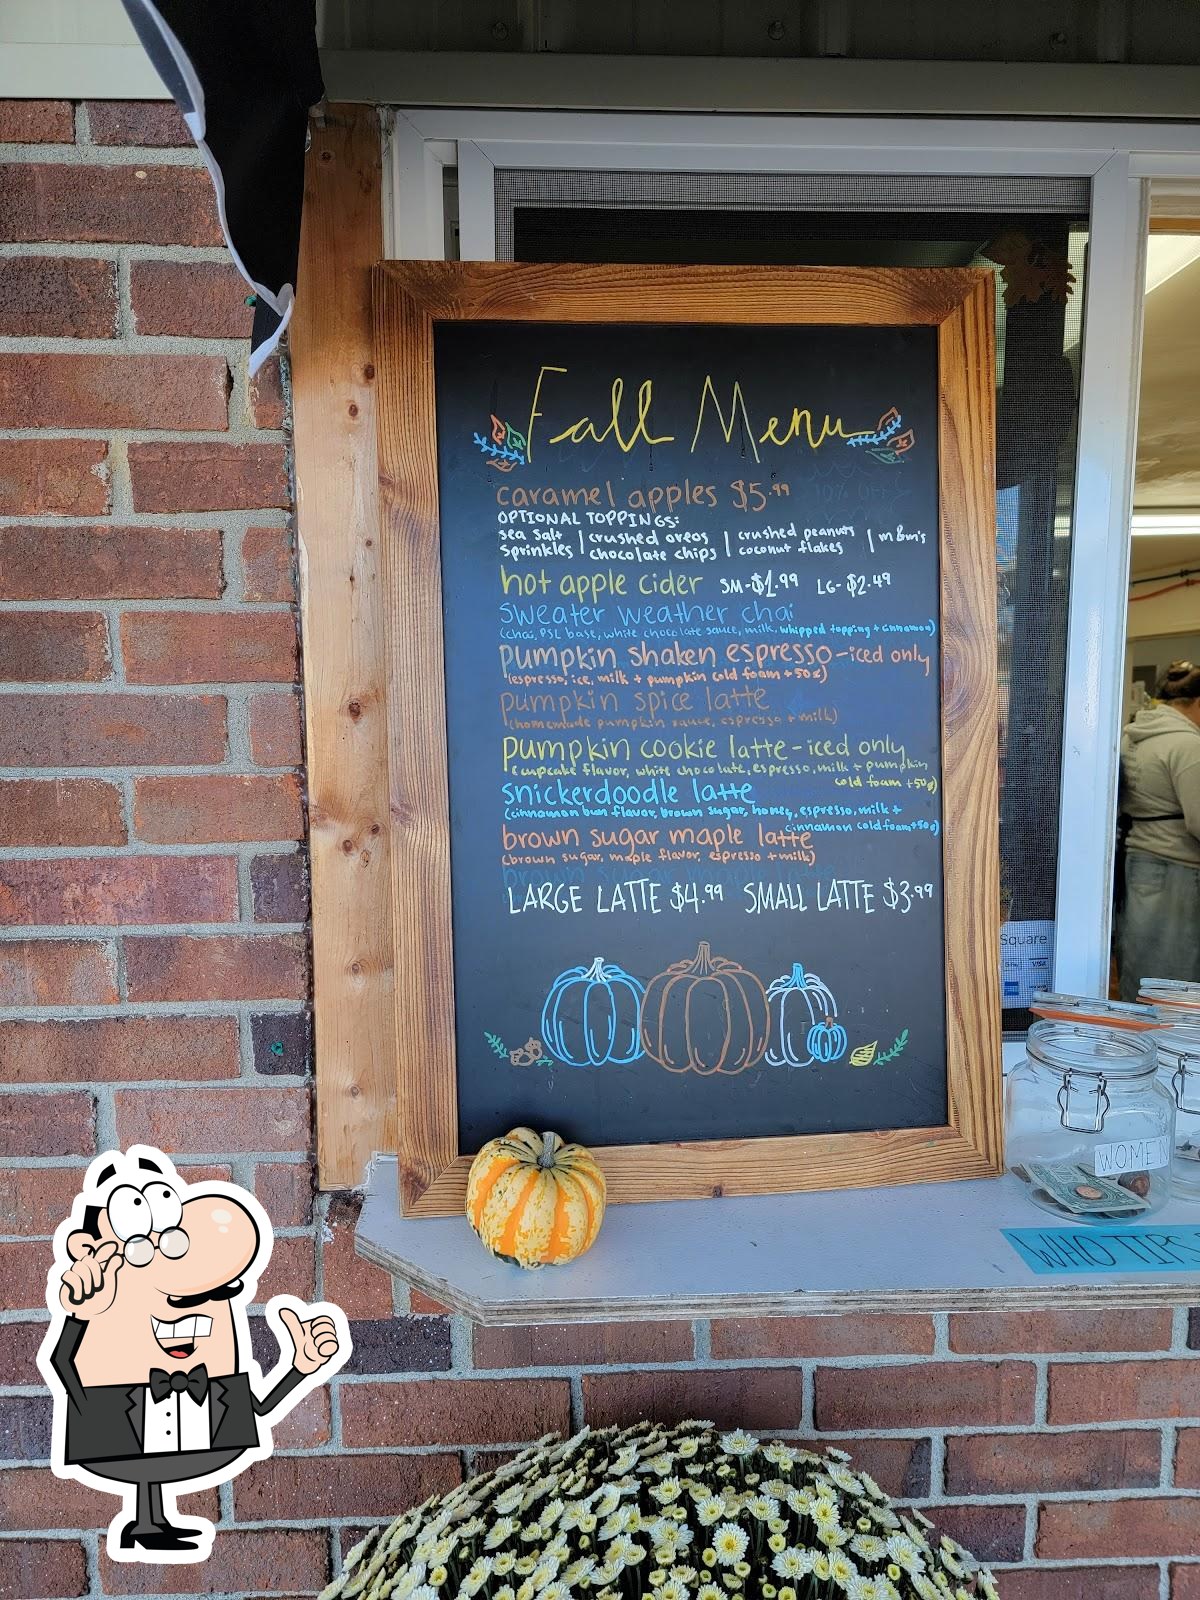 Fall Menu
caramel apples $5.99
OPTIONAL TOPPINGS:
sea salt | crushed oreos | crushed peanuts | m&m's
sprinkles | chocolate chips | coconut flakes
hot apple cider SM-$1.99 LG-$2.49
sweater weather chai
(chai, PSL base, white chocolate sauce, milk, whipped topping + cinnamon)
pumpkin shaken espresso-iced only
(espresso, ice, milk + pumpkin cold foam +50¢)
pumpkin spice latte
(homemade pumpkin sauce, espresso + milk)
pumpkin cookie latte-iced only
(cupcake flavor, white chocolate, espresso, milk + pumpkin
cold foam +50¢)
snickerdoodle latte
(cinnamon bun flavor, brown sugar, honey, espresso, milk +
cinnamon cold foam+50¢)
brown sugar maple latte
(brown sugar, maple flavor, espresso + milk)
LARGE LATTE $4.99 SMALL LATTE $3.99
Square
VISA
WOMEN
WHO TIPS